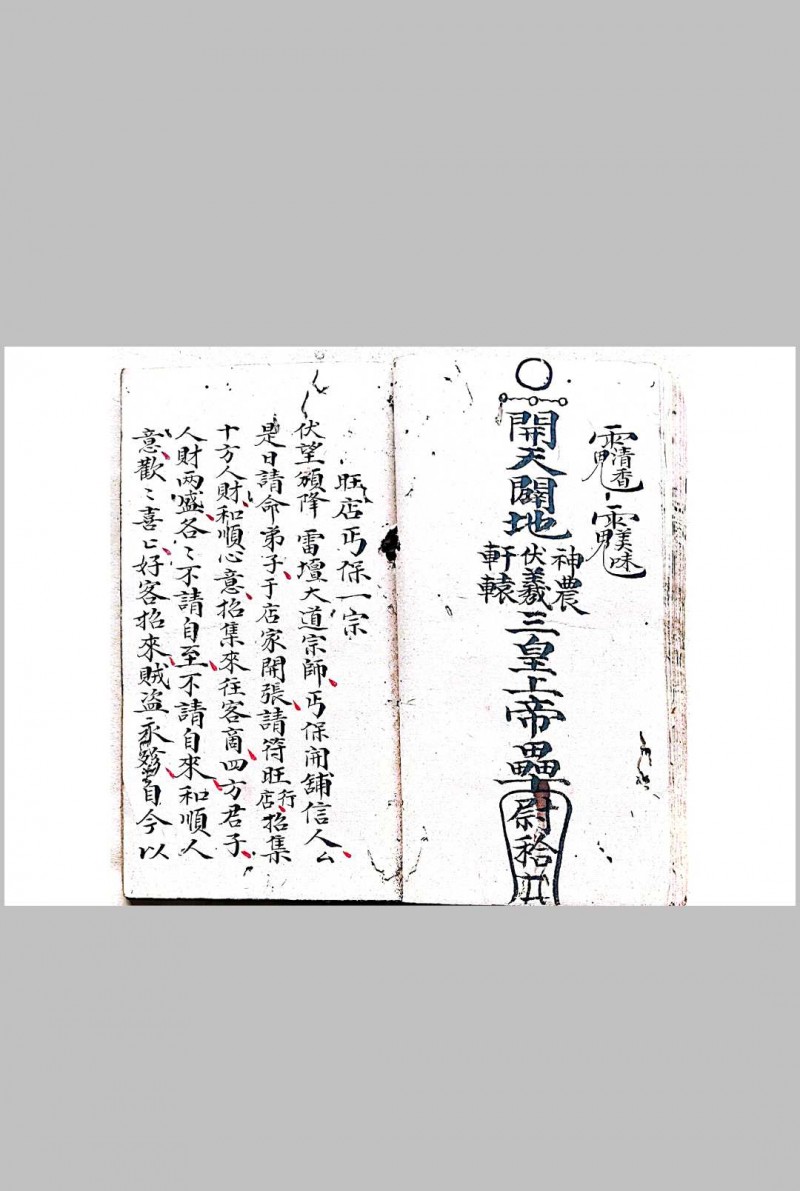 清香 美味
開天闢地
神農
伏羲
軒轅
三皇上帝
尉
旺店丐保一宗
伏望頒降 雷壇大道宗師丐保開舖信人厶
是日請命弟子于店家開張請符旺行店招集
十方人財和順心意招集來往客商四方君子
人財兩盛各〻不請自至不請自來和順人
意歡〻喜〻好客招來賊盜永 自今以